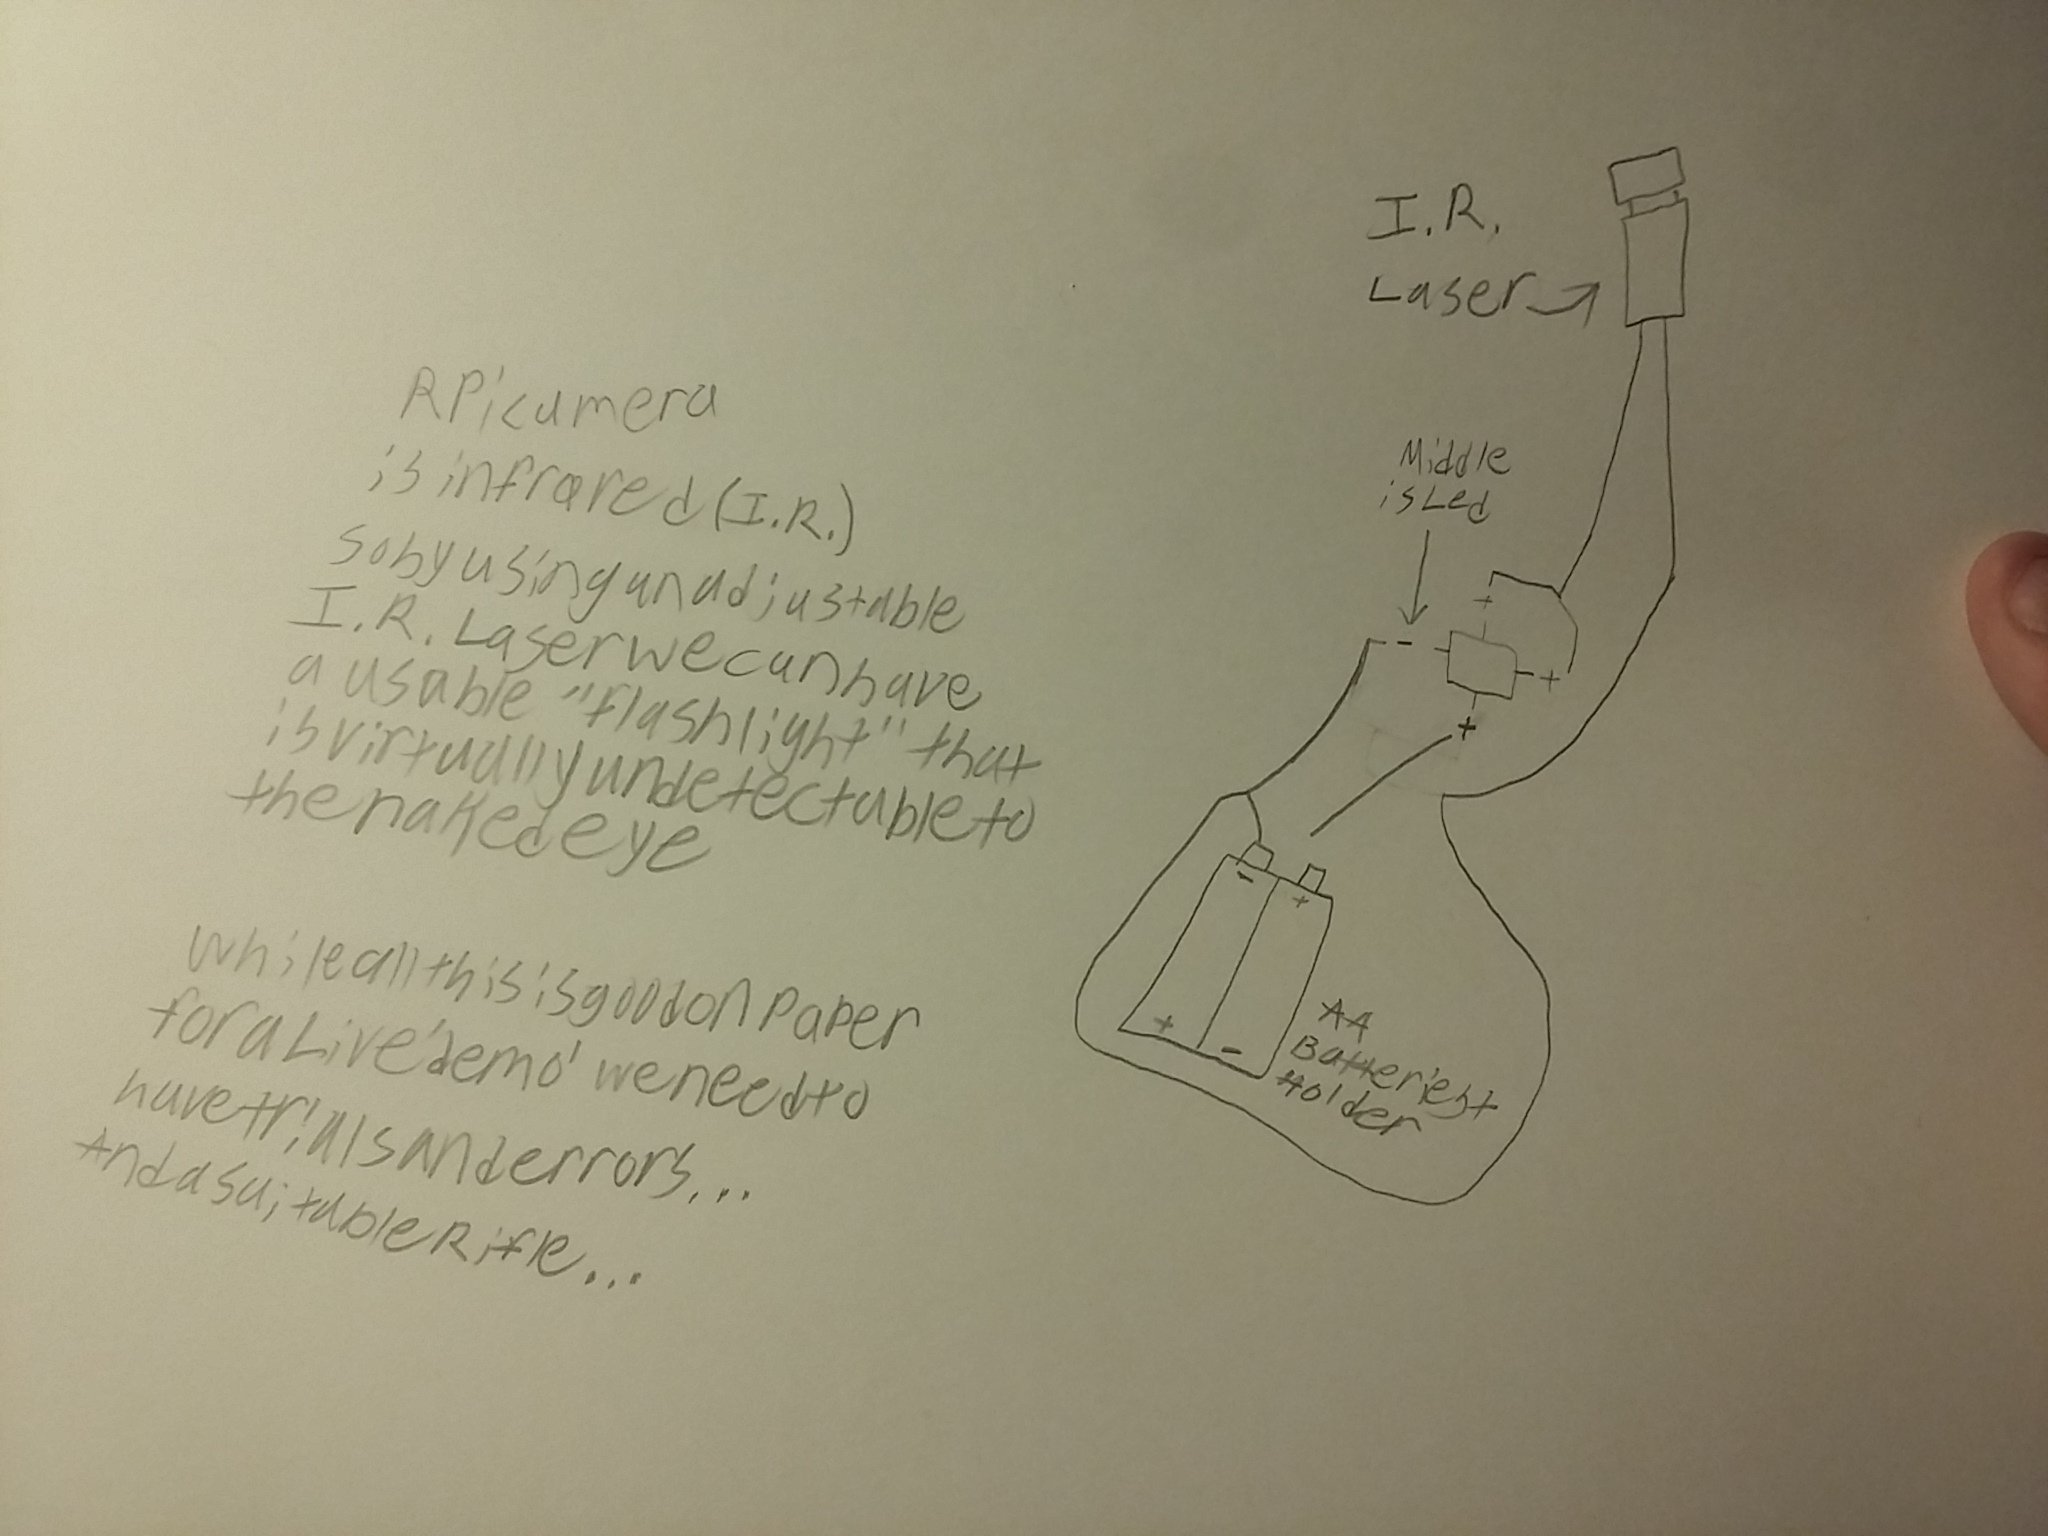 RPi camera
is infrared (I.R.)
so by using an adjustable
I.R. Laser we can have
a usable "flashlight" that
is virtually undetectable to
the naked eye
While all this is good on paper
for a Live 'demo' we need to
have trials and errors...
And a suitable Rifle...
I.R.
Laser
Middle
is Led
+
- 
+
+
-
+
+
-
AA
Holder